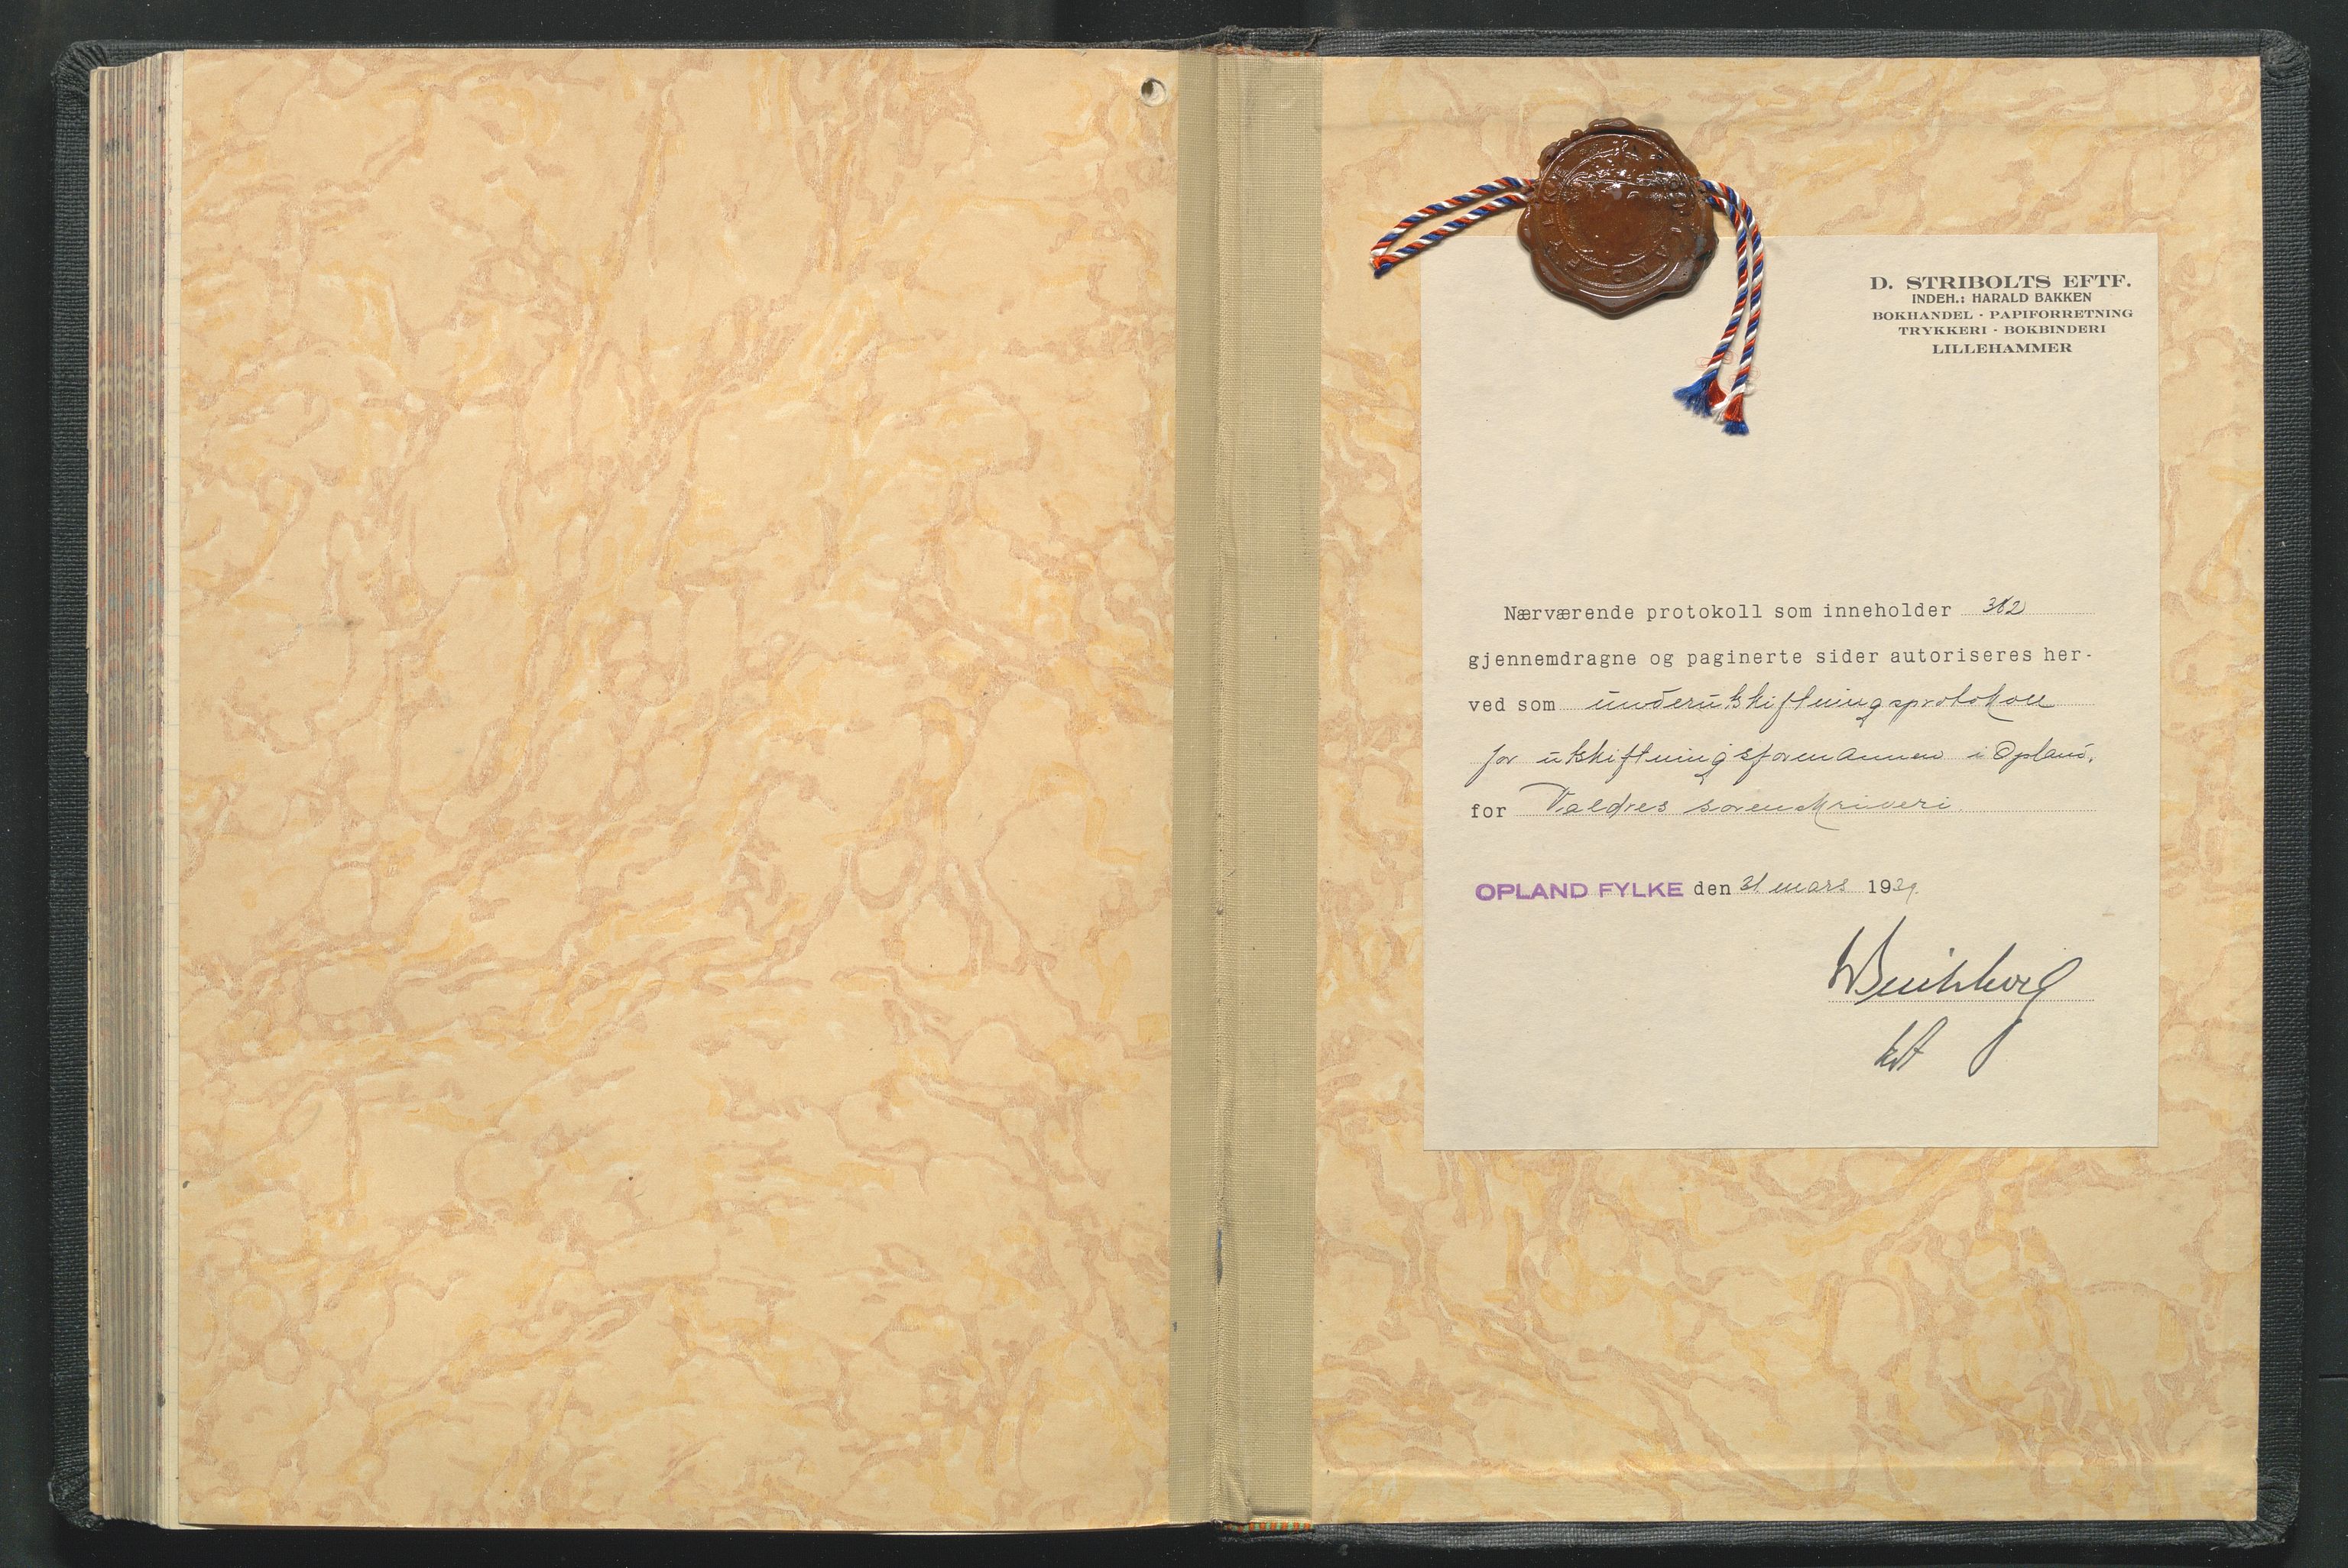 D. STRIBOLTS EFTF.
INDEH.: HARALD BAKKEN
BOKHANDEL · PAPIFORRETNING
TRYKKERI · BOKBINDERI
LILLEHAMMER
Nærværende protokoll som inneholder
gjennemdragne og paginerte sider autoriseres her-
ved som underutskiftningsprotokoll
for utskiftningsformannen i Opland,
for Valdres sorenskriveri.
OPLAND FYLKE den 31 mars 19
kst